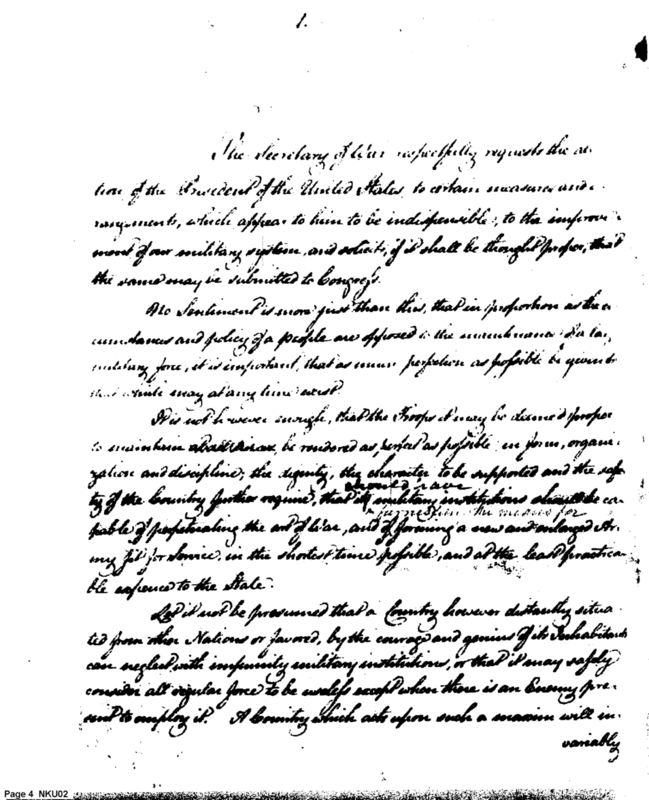 1.
The Secretary of War respectfully requests the at-
tion of the President of the United States, to certain measures and
rangements, which appear to him to be indispensible, to the improve-
ment of our military system, and solicits, if it shall be thought proper, that
the same may be submitted to Congress.
No Sentiment is more just than this, that in proportion as the
cumstances and policy of a people are opposed to the maintenance of a
military force, it is important, that as much perfection as possible be given to
that which may at any time exist.
It is not however enough, that the Troops it may be deemed proper
to maintain be rendered as perfect as possible in form, organi-
zation and discipline; the dignity, the character to be supported and the safe-
ty of the Country further require, that its military institutions should be ca-
should have
furnish the means for
pable of perpetuating the art of War, and of forming a new and enlarged Ar-
my fit for Service, in the shortest time possible, and at the least practica-
ble expence to the State.
Let it not be presumed that a Country however distantly situa-
ted from other Nations or favored, by the courage and genius of its Inhabitants
can neglect with impunity military institutions, or that it may safely
consider all regular force to be useless except when there is an Enemy pre-
sent to employ it. A Country which acts upon such a maxim will in-
variably
Page 4 NKU02